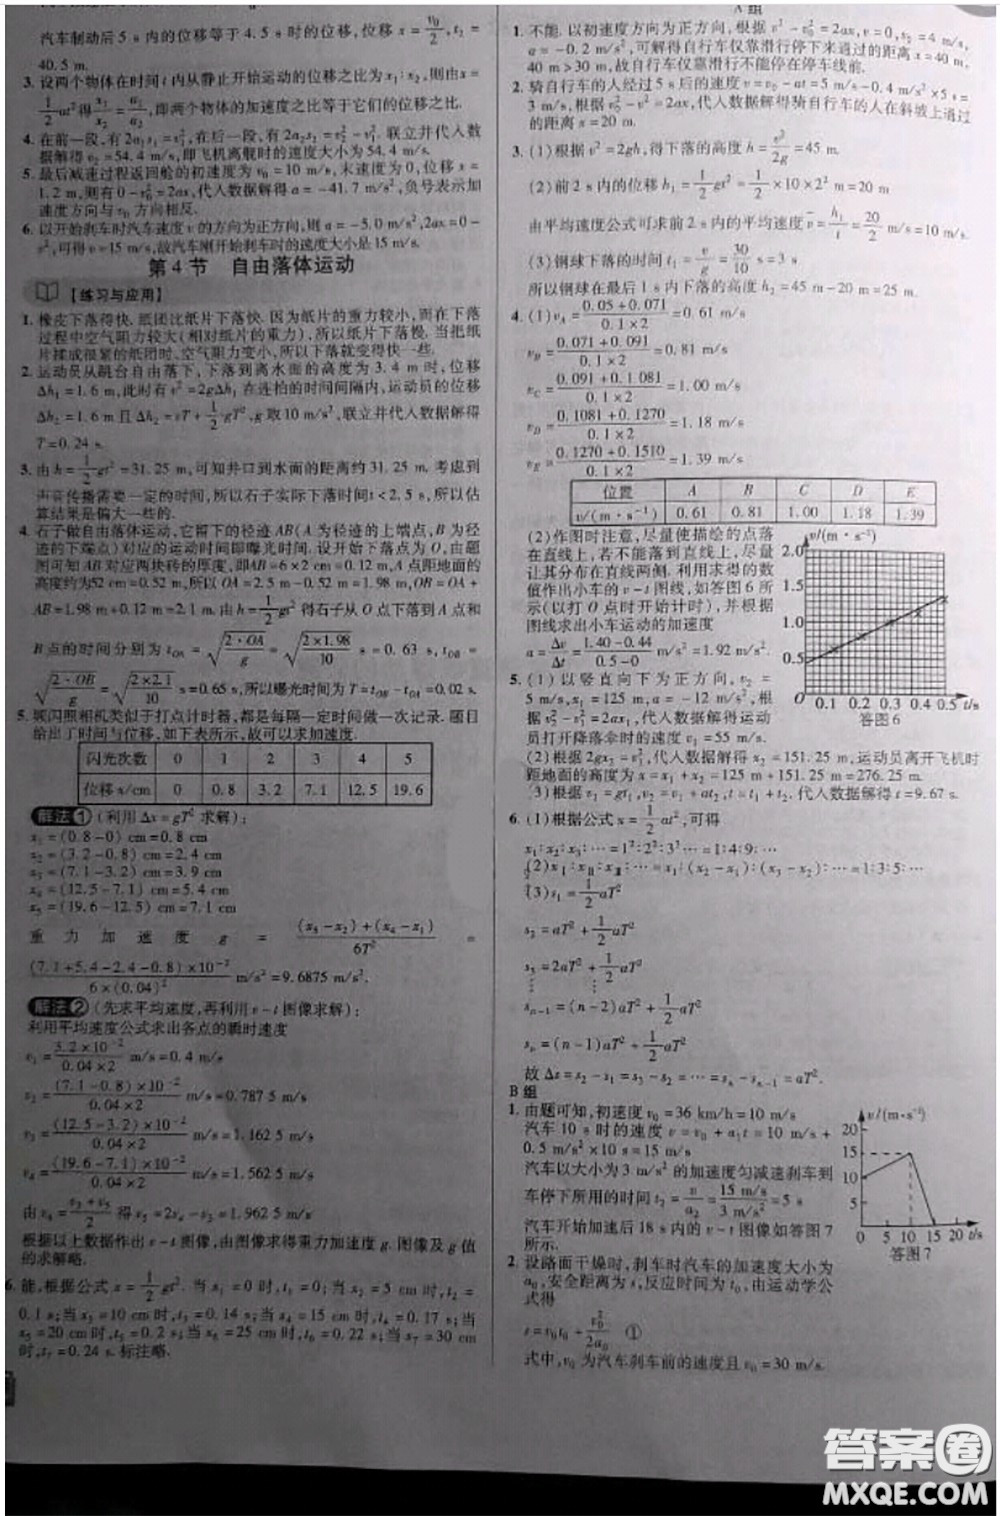 汽车制动后5 s内的位移等于4.5 s时的位移,位移x=v₀/2,t₂=
40.5 m.
3. 设两个物体在时间t内从静止开始运动的位移之比为x₁:x₂,由x=
1/2at²得x₁/x₂=a₁/a₂,即两个物体的加速度之比等于它们的位移之比.
4. 在前一段,有2a₁s₁=v₁²,在后一段,有2a₂s₂=v₂²-v₁². 联立并代入数
据解得v₂=54.4 m/s,即飞机离舰时的速度大小为54.4 m/s.
5. 最后减速过程返回舱的初速度为v₀=10 m/s,末速度为0,位移x=
1.2 m,则有0-v₀²=2ax,代入数据解得a=-41.7 m/s²,负号表示加
速度方向与v₀方向相反.
6. 以开始刹车时汽车速度v的方向为正方向,则a=-5.0 m/s²,2ax=0-
v²,可得v=15 m/s,故汽车刚开始刹车时的速度大小是15 m/s.
第4节 自由落体运动
【练习与应用】
1. 橡皮下落得快.纸团比纸片下落快.因为纸片的重力较小,而在下落
过程中空气阻力较大(相对纸片的重力),所以纸片下落慢.当把纸
片揉成很紧的纸团时,空气阻力变小,所以下落就变得快一些.
2. 运动员从跳台自由落下,下落到离水面的高度为3.4 m时,位移
Δh₁=1.6 m,此时有v²=2gΔh₁.在连拍的时间间隔内,运动员的位移
Δh₂=1.6 m且Δh₂=vT+1/2gT²,g取10 m/s²,联立并代入数据解得
T=0.24 s.
3. 由h=1/2gt²=31.25 m,可知井口到水面的距离约31.25 m.考虑到
声音传播需要一定的时间,所以石子实际下落时间t<2.5 s,所以估
算结果是偏大一些的.
4. 石子做自由落体运动,它留下的径迹AB(A为径迹的上端点,B为径
迹的下端点)对应的运动时间即曝光时间.设开始下落点为O,由题
图可知AB对应两块砖的厚度,即AB=6×2 cm=0.12 m,A点距地面的
高度约为52 cm=0.52 m,所以OA=2.5 m-0.52 m=1.98 m,OB=OA+
AB=1.98 m+0.12 m=2.1 m.由h=1/2gt²得石子从O点下落到A点和
B点的时间分别为tOA=√(2·OA/g)=√(2×1.98/10) s=0.63 s,tOB=
√(2·OB/g)=√(2×2.1/10) s=0.65 s,所以曝光时间为T=tOB-tOA=0.02 s.
5. 频闪照相机类似于打点计时器,都是每隔一定时间做一次记录.题目
给出了时间与位移,如下表所示,故可以求加速度.
闪光次数 0 1 2 3 4 5
位移x/cm 0 0.8 3.2 7.1 12.5 19.6
解法①(利用Δx=gT²求解):
x₁=(0.8-0) cm=0.8 cm
x₂=(3.2-0.8) cm=2.4 cm
x₃=(7.1-3.2) cm=3.9 cm
x₄=(12.5-7.1) cm=5.4 cm
x₅=(19.6-12.5) cm=7.1 cm
重力加速度g=((x₅-x₂)+(x₄-x₁))/6T²=
(7.1+5.4-2.4-0.8)×10⁻²/6×(0.04)² m/s²=9.6875 m/s².
解法②(先求平均速度,再利用v-t图像求解):
利用平均速度公式求出各点的瞬时速度
v₁=3.2×10⁻²/0.04×2 m/s=0.4 m/s
v₂=(7.1-0.8)×10⁻²/0.04×2 m/s=0.787 5 m/s
v₃=(12.5-3.2)×10⁻²/0.04×2 m/s=1.162 5 m/s
v₄=(19.6-7.1)×10⁻²/0.04×2 m/s=1.562 5 m/s
由v₄=(v₃+v₅)/2得v₅=2v₄-v₃=1.962 5 m/s
根据以上数据作出v-t图像,由图像求得重力加速度g.图像及g值
的求解略.
6. 能,根据公式x=1/2gt².当x₁=0时,t₁=0;当x₂=5 cm时,t₂=
0.1 s;当x₃=10 cm时,t₃=0.14 s;当x₄=15 cm时,t₄=0.17 s;当
x₅=20 cm时,t₅=0.2 s;当x₆=25 cm时,t₆=0.22 s;当x₇=30 cm
时,t₇=0.24 s.标注略.
A组
1. 不能.以初速度方向为正方向,根据v²-v₀²=2ax,v=0,v₀=4 m/s,
a=-0.2 m/s²,可解得自行车仅靠滑行停下来通过的距离x=
40 m>30 m,故自行车仅靠滑行不能停在停车线前.
2. 骑自行车的人经过5 s后的速度v=v₀+at=5 m/s-0.4 m/s²×5 s=
3 m/s,根据v²-v₀²=2ax,代入数据解得骑自行车的人在斜坡上通过
的距离x=20 m.
3. (1)根据v²=2gh,得下落的高度h=v²/2g=45 m.
(2)前2 s内的位移h₁=1/2gt²=1/2×10×2² m=20 m
由平均速度公式可求前2 s内的平均速度v̄=h₁/t=20/2 m/s=10 m/s.
(3)钢球下落的时间t₁=v/g=30/10 s=3 s
所以钢球在最后1 s内下落的高度h₂=45 m-20 m=25 m.
4. (1)vA=(0.05+0.071)/0.1×2=0.61 m/s
vB=(0.071+0.091)/0.1×2=0.81 m/s
vC=(0.091+0.1081)/0.1×2=1.00 m/s
vD=(0.1081+0.1270)/0.1×2=1.18 m/s
vE=(0.1270+0.1510)/0.1×2=1.39 m/s
位置 A B C D E
v/(m·s⁻¹) 0.61 0.81 1.00 1.18 1.39
(2)作图时注意,尽量使描绘的点落
在直线上,若不能落到直线上,尽量
让其分布在直线两侧.利用求得的数
值作出小车的v-t图线,如答图6所
示(以打O点时开始计时),并根据
图线求出小车运动的加速度
a=Δv/Δt=(1.40-0.44)/0.5 m/s²=1.92 m/s².
v/(m·s⁻¹)
2.0
1.5
1.0
0.5
O 0.1 0.2 0.3 0.4 0.5 t/s
答图6
5. (1)以竖直向下为正方向,v₂=
5 m/s,x₁=125 m,a=-12 m/s²,根
据v₂²-v₁²=2ax₁,代入数据解得运动
员打开降落伞时的速度v₁=55 m/s.
(2)根据2gx₂=v₁²,代入数据解得x₂=151.25 m,运动员离开飞机时
距地面的高度为x=x₁+x₂=125 m+151.25 m=276.25 m.
(3)根据v₁=gt₁,v₂=v₁+at₂,t=t₁+t₂,代入数据解得t=9.67 s.
6. (1)根据公式x=1/2at²,可得
x₁:x₂:x₃:⋯=1²:2²:3²⋯=1:4:9:⋯
(2)xⅠ:xⅡ:xⅢ:⋯=x₁:(x₂-x₁):(x₃-x₂):⋯=1:3:5:⋯
(3)s₁=1/2aT²
s₂=aT²+1/2aT²
s₃=2aT²+1/2aT²
⋮ ⋮
sₙ₋₁=(n-2)aT²+1/2aT²
sₙ=(n-1)aT²+1/2aT²
故Δs=s₂-s₁=s₃-s₂=⋯=sₙ-sₙ₋₁=aT²
B组
1. 由题可知,初速度v₀=36 km/h=10 m/s
汽车10 s时的速度v=v₀+a₁t=10 m/s+
0.5 m/s²×10 s=15 m/s
汽车以大小为3 m/s²的加速度匀减速刹车到
车停下所用的时间t₂=v/a₂=15 m/s/3 m/s²=5 s
汽车开始加速后18 s内的v-t图像如答图7
所示.
v/(m·s⁻¹)
20
15
10
5
O 5 10 15 20 t/s
答图7
2. 设路面干燥时,刹车时汽车的加速度大小为
a₀,安全距离为s,反应时间为t₀,由运动学公
式得
s=v₀t₀+v₀²/2a₀ ①
式中,v₀为汽车刹车前的速度且v₀=30 m/s.
答案圈
MXQE.COM